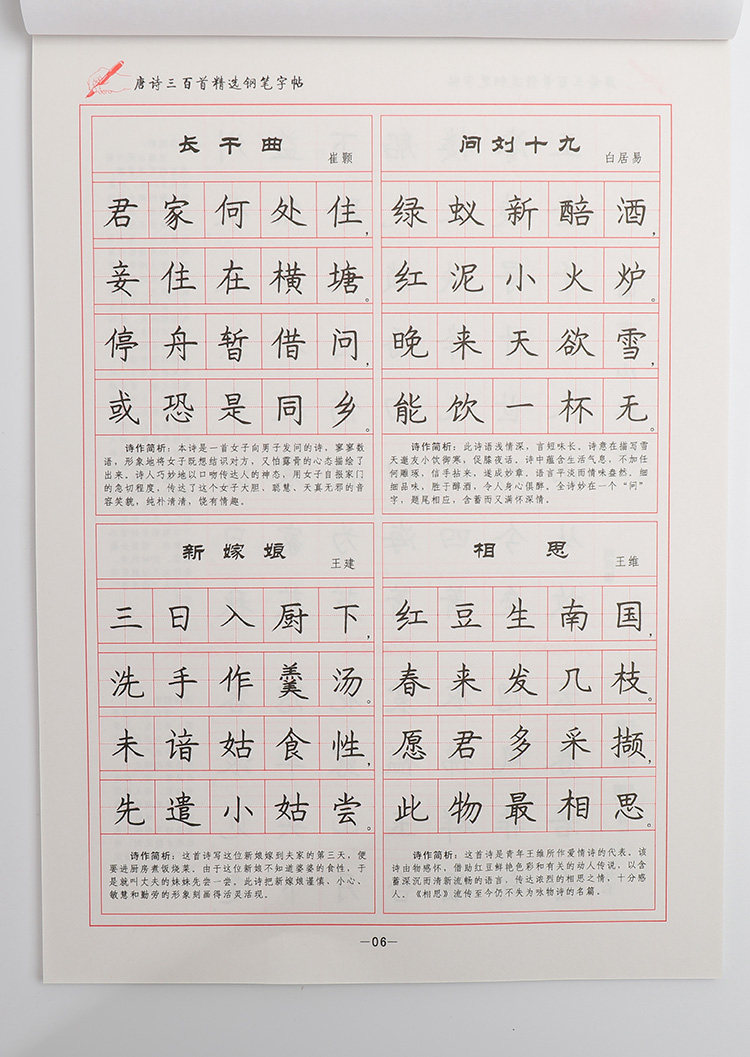 唐诗三百首精选钢笔字帖
长干曲
崔颢
君家何处住，
妾住在横塘。
停舟暂借问，
或恐是同乡。
诗作简析：本诗是一首女子向男子发问的诗，寥寥数
语，形象地将女子既想结识对方，又怕露骨的心态描绘了
出来。诗人巧妙地以口吻传达人的神态，用女子自报家门
的急切程度，传达了这个女子大胆、聪慧、天真无邪的音
容笑貌，纯朴清清，饶有情趣。
问刘十九
白居易
绿蚁新醅酒，
红泥小火炉。
晚来天欲雪，
能饮一杯无。
诗作简析：此诗语浅情深，言短味长。诗意在描写雪
天邀友小饮御寒，促膝夜话。诗中蕴含生活气息，不加任
何雕琢，信手拈来，遂成妙章。语言平淡而情味盎然。细
细品味，胜于醇酒。令人身心俱醉。全诗妙在一个“问”
字，题尾相应，含蓄而又满怀深情。
新嫁娘
王建
三日入厨下，
洗手作羹汤。
未谙姑食性，
先遣小姑尝。
诗作简析：这首诗写这位新娘嫁到夫家的第三天，便
要进厨房煮饭烧菜。由于这位新娘不知道婆婆的食性，于
是就叫丈夫的妹妹先尝一尝。此诗把新嫁娘谨慎、小心、
敏慧和勤劳的形象刻画得活灵活现。
相思
王维
红豆生南国，
春来发几枝。
愿君多采撷，
此物最相思。
诗作简析：这首诗是青年王维所作爱情诗的代表。该
诗由物感怀，借助红豆鲜艳色彩和有关的动人传说，以含
蓄深沉而清新流畅的语言，传达浓烈的相思之情，十分感
人。《相思》流传至今仍不失为咏物诗的名篇。
—06—